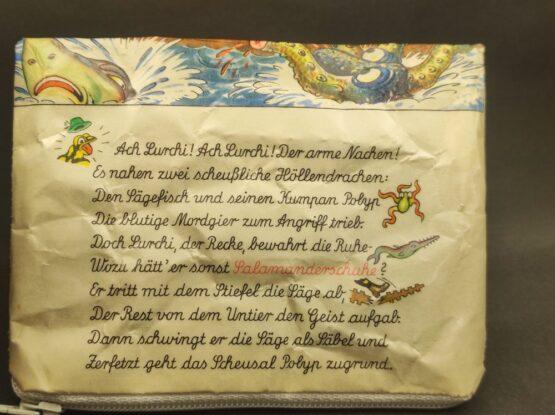 Ach Lurchi! Ach Lurchi! Der arme Nachen!
Es nahem zwei scheußliche Höllendrachen:
Den Sägefisch und seinen Kumpan Polyp
Die blutige Mordgier zum Angriff trieb.
Doch Lurchi, der Recke, bewahrt die Ruhe-
Wozu hätt' er sonst Salamanderschuhe?
Er tritt mit dem Stiefel die Säge ab,
Der Rest von dem Untier den Geist aufgab.
Dann schwingt er die Säge als Säbel und
Zerfetzt geht das Scheusal Polyp zugrund.